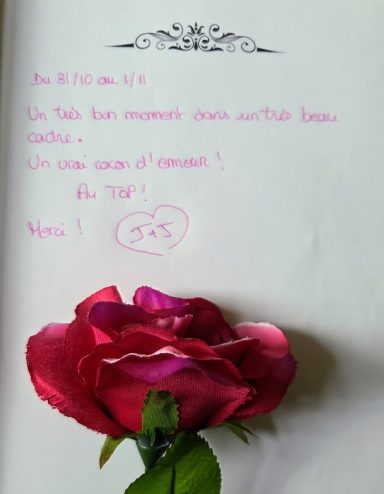 Du 31/10 au 1/11
Un très bon moment dans un très beau
cadre.
Un vrai cocon d'amour !
Au TOP !
Merci ! J+J